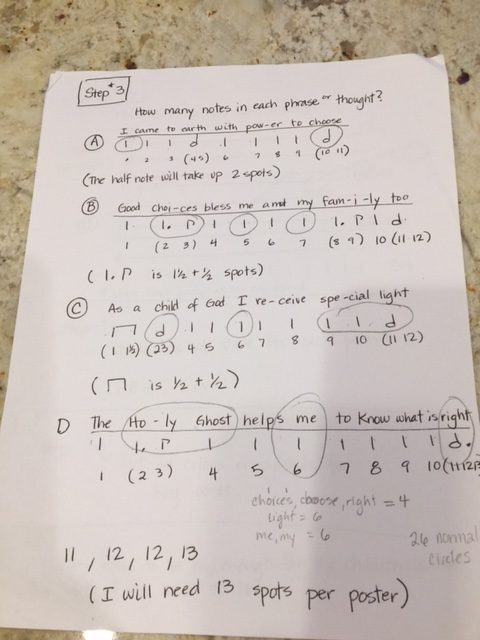 Step #3
How many notes in each phrase or thought?
A I came to earth with pow-er to choose
1 2 3 (4 5) 6 7 8 9 (10 11)
(The half note will take up 2 spots)
B Good choi-ces bless me and my fam-i-ly too
1 (2 3) 4 5 6 7 (8 9) 10 (11 12)
( ♩. ♪ is 1½ + ½ spots)
C As a child of God I re-ceive spe-cial light
(1 1½) (2 3) 4 5 6 7 8 9 10 (11 12)
( ♫ is ½ + ½ )
D The Ho-ly Ghost helps me to know what is right
1 (2 3) 4 5 6 7 8 9 10 (11 12 13
choices, choose, right = 4
light = 6
me, my = 6
26 normal
circles
11, 12, 12, 13
(I will need 13 spots per poster)